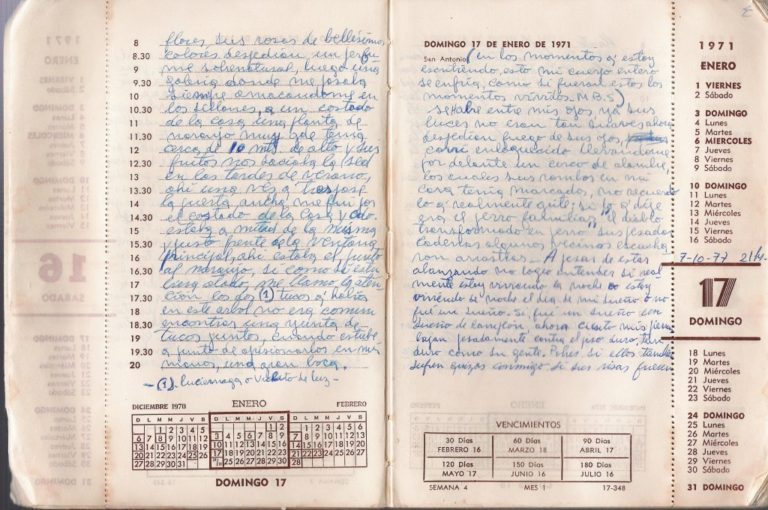 8 flores, sus rosas de bellísimos
8.30 colores despedían un perfu
9 me sobrenatural, luego una
9.30 galería donde me posaba
10 siempre amacandome en
10.30 los sillones, a un costado
11 de la casa una planta de
11.30 naranjo muy que tenía
12 cerca de 10 mts. de alto y sus
12.30 frutos nos saciaba la sed
13 en las tardes de verano,
13.30 ahí una vez
14 la puerta ancha me fui por
14.30 el costado de la casa y cdo.
15 estaba a mitad de la misma
15.30 y justo frente de la ventana
16 principal, ahí estaba él, junto
16.30 al naranjo, si como si estu
17 biera atado, me llamó la aten
17.30 ción los dos (1) tucos q' habían
18 en este árbol no era común
18.30 encontrar una yunta de
19 tucos juntos, cuando estube
19.30 a punto de aprisionarlos en mis
20 manos, una gran boca.
(1) Luciernaga o Vichito de luz -
DICIEMBRE 1970 ENERO FEBRERO
D L M M J V S
DOMINGO 17
DOMINGO 17 DE ENERO DE 1971
San Antonio
(en los momentos q' estoy
escribiendo, esto mi cuerpo entero
se enfría, como si fueran estos los
momentos vividos. M.B.S)
se abre ante mis ojos, ya sus
luces no eran tan suaves, ahora
despedían fuego de sus ojos,
corrí enloquecido llevándome
por delante un cerco de alambre,
los cuales sus rombos en mi
cara tenía marcados, no recuerdo
lo q' realmente grité; si lo q' dije
era el perro familiar, "el diablo
transformado en perro sus pesadas
cadenas algunos vecinos escucha
ron arrastrar - A pesar de estar
alcanzando no logro entender si real
mente estoy viviendo la noche o estoy
viviendo de noche el día de mi sueño o no
fue un sueño. Si, fue un sueño, un
sueño de campeón, ahora cuento mis
bajan pesadamente contra el piso duro, tan
duro como su gente. Pobres, si ellos también
sufren quizás conmigo si sus risas fueron
7-10-77 21hs.
VENCIMIENTOS
30 Días 60 Días 90 Días
FEBRERO 16 MARZO 18 ABRIL 17
120 Días 150 Días 180 Días
MAYO 17 JUNIO 16 JULIO 16
SEMANA 4 MES 1 17-348
1971
ENERO
1 VIERNES
2 Sábado
3 DOMINGO
4 Lunes
5 Martes
6 MIERCOLES
7 Jueves
8 Viernes
9 Sábado
10 DOMINGO
11 Lunes
12 Martes
13 Miércoles
14 Jueves
15 Viernes
16 Sábado
17
DOMINGO
18 Lunes
19 Martes
20 Miércoles
21 Jueves
22 Viernes
23 Sábado
24 DOMINGO
25 Lunes
26 Martes
27 Miércoles
28 Jueves
29 Viernes
30 Sábado
31 DOMINGO